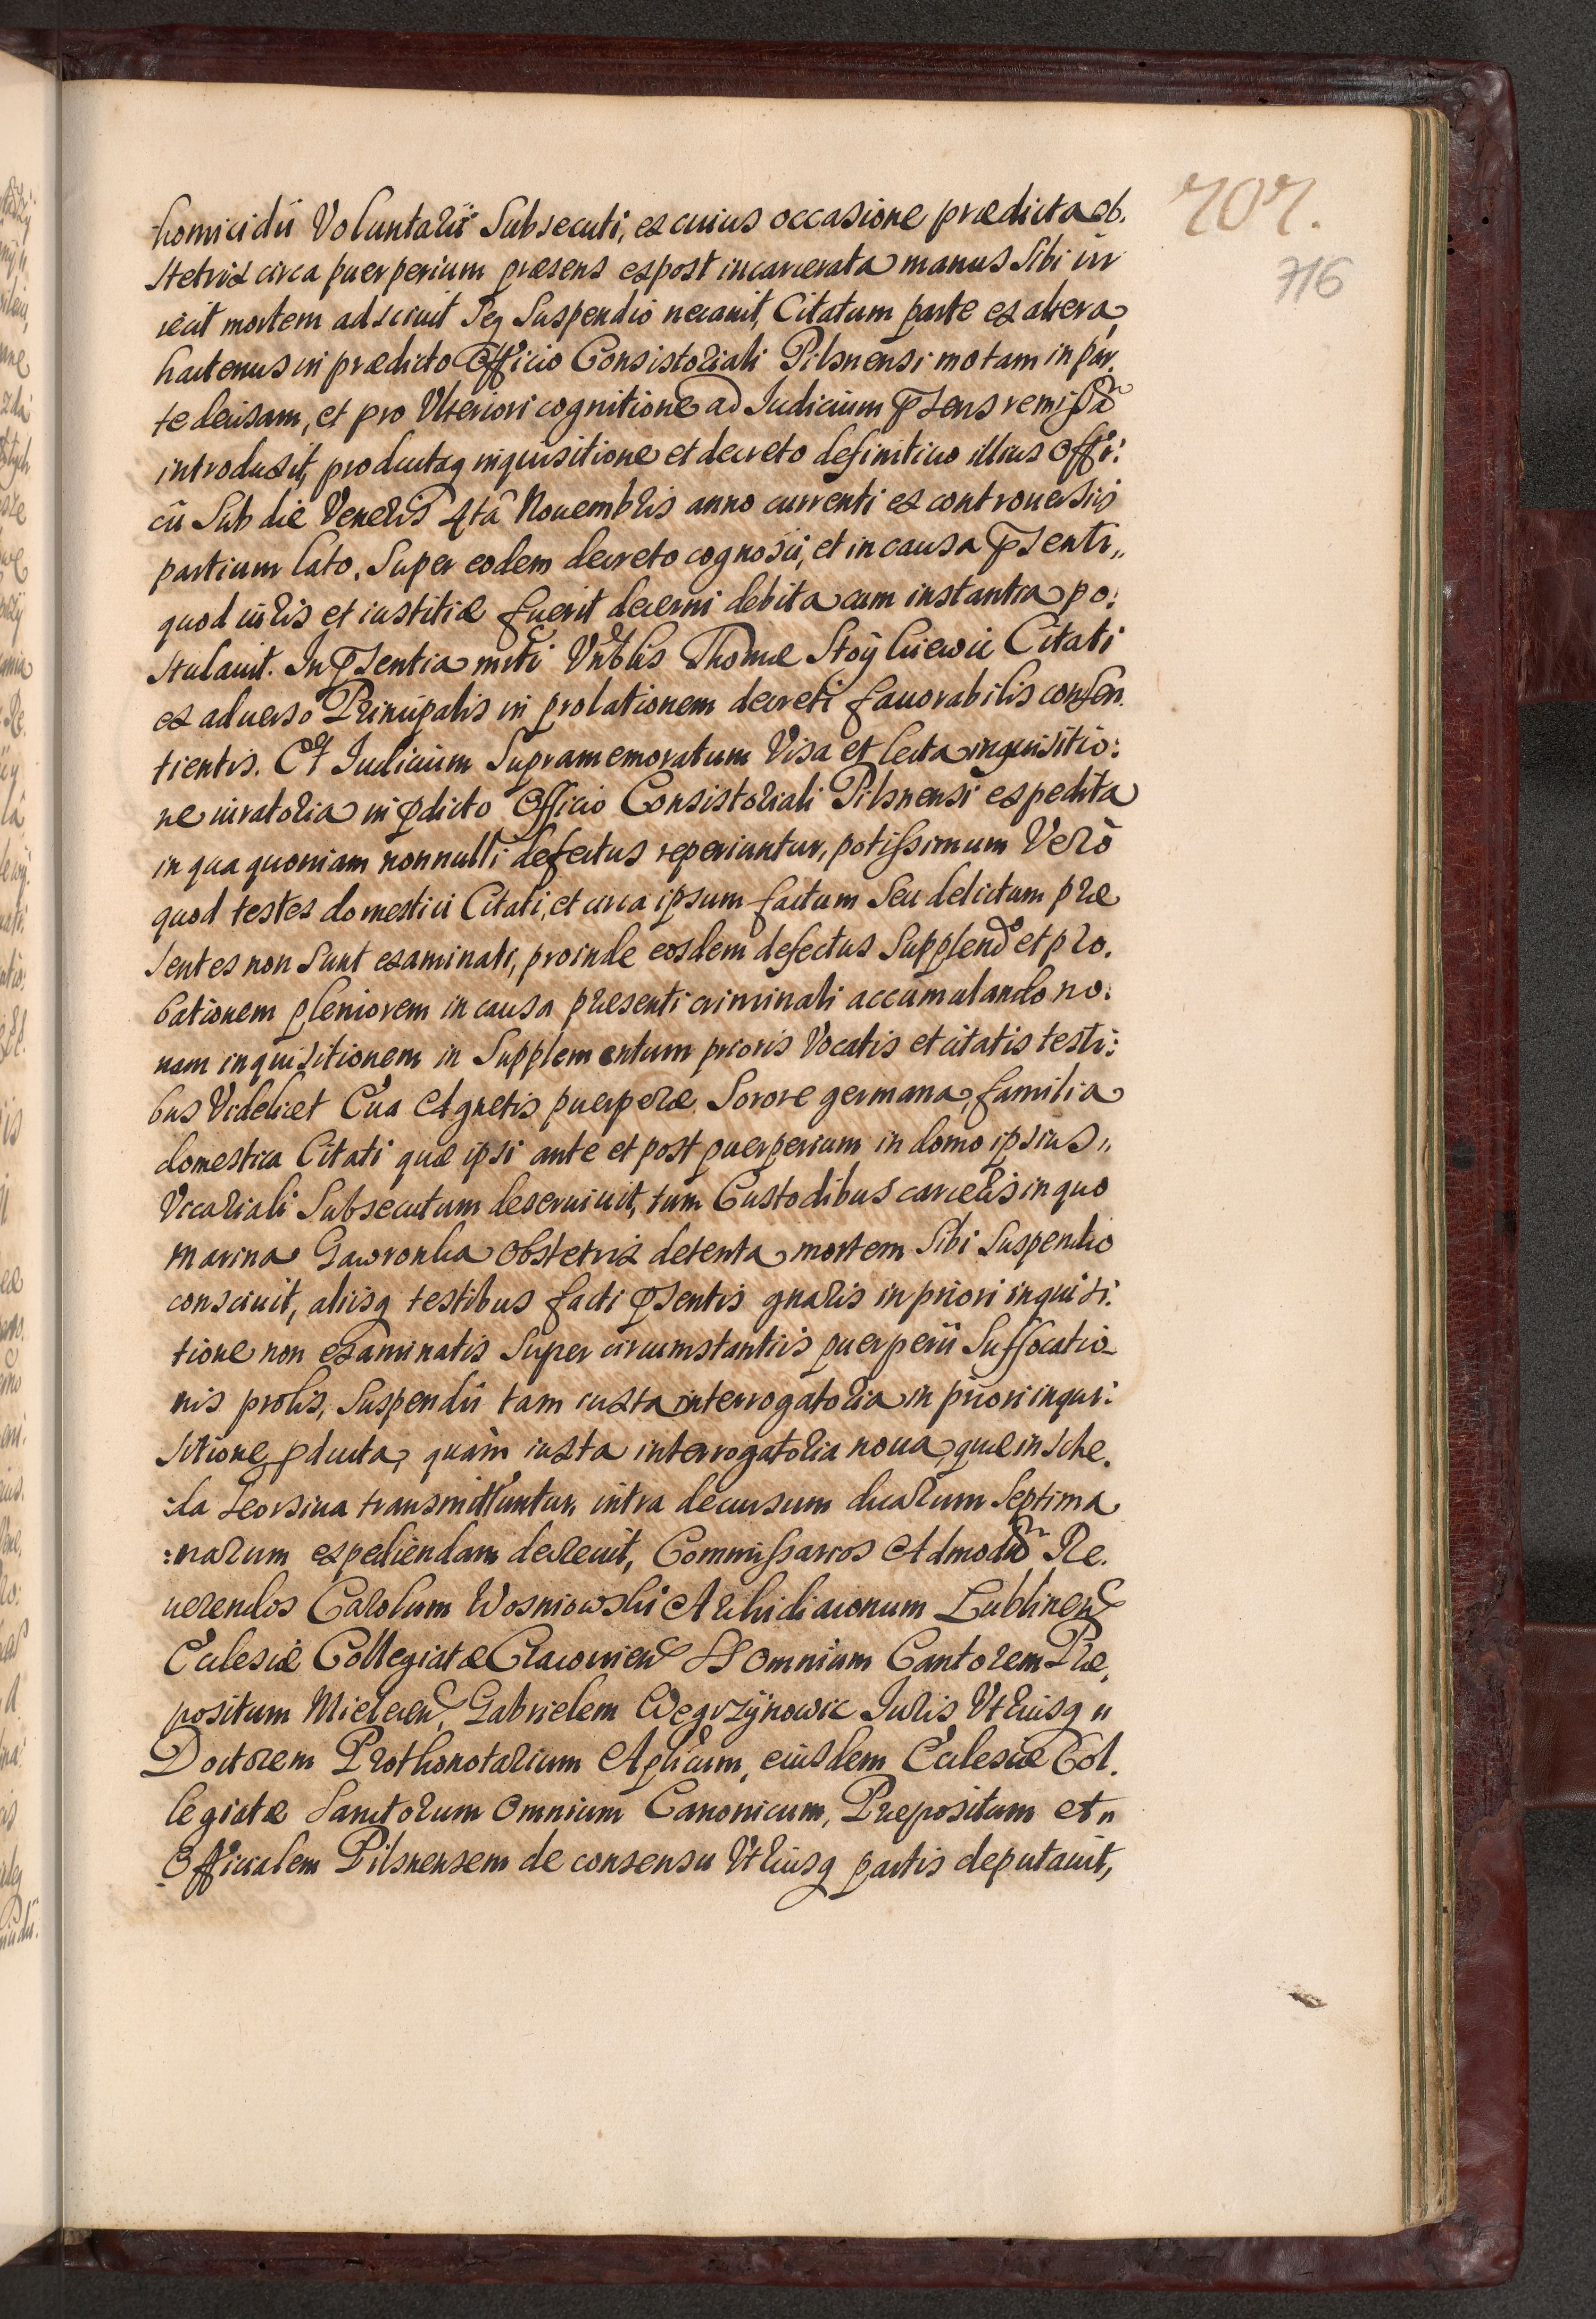 707.
716
homicidii Voluntarii Subsecuti, ex cuius occasione prædicta ob.
stetrix circa puerperium præsens expost incarcerata manus Sibi in
iecit mortem adsciuit Seq Suspendio necauit, Citatum parte ex altera
hactenus in prædicto Officio Consistoriali Pilsnensi motam in par,
te decisam, et pro Vlteriori cognitione ad Iudicium pñsens remissã
introduxit, productaq inquisitione et decreto definitiuo illius Offi:
cii Sub die Veneris 4tâ Nouembris anno currenti ex controuersiis
partium lato, Super eodem decreto cognosci, et in causa pñsenti,,
quod iuris et iustitiæ fuerit decerni debita cum instantia po:
stulauit. In pñsentia Vñblis Thomæ Citati
ex aduerso Principalis in prolationem decreti fauorabilis consen.
tientis. Et Iudicium Supramemoratum Visa et lecta inquisitio:
ne iuratoria in pdicto Officio Consistoriali Pilsnensi expedita
in qua quoniam nonnulli defectus reperiuntur, potissimum Verò
quod testes domestici Citati, et circa ipsum factum Seu delictum præ
sentes non Sunt examinati, proinde eosdem defectus Supplendo et pro.
bationem pleniorem in causa præsenti criminali accumulando no:
uam inquisitionem in Supplementum prioris Vocatis et citatis testi:
bus Videlicet Eua Agnetis puerperæ Sorore germana, familia
domestica Citati quæ ipsi ante et post puerperium in domo ipsius,,
Vicariali Subsecutum deseruiuit, tum Custodibus carceris in quo
Marina Gawronka Obstetrix detenta mortem Sibi Suspendio
consciuit, aliisq testibus facti pñsentis gnaris in priori inquisi:
tione non examinatis Super circumstantiis puerperii Suffocatio
nis prolis, Suspendii tam iuxta interrogatoria in priori inqui:
sitione pducta, quàm iuxta interrogatoria noua, quæ in Sche.
:da Seorsiua transmittuntur, intra decursum duarum Septima
:narum expediendam decreuit, Commissarios Admodũ Re.
uerendos Carolum Wosniowski Archidiaconum Lublinen
Ecclesiæ Collegiatæ Cracouien SS Omnium Cantorem Præ,
positum Mielecen, Gabrielem Wegrzÿnowic Iuris Vtriusq,,
Doctorem Prothonotarium Aplicum, eiusdem Ecclesiæ Col.
legiatæ Sanctorum Omnium Canonicum, Præpositum et,,
Officialem Pilsnensem de consensu Vtriusq partis deputauit,